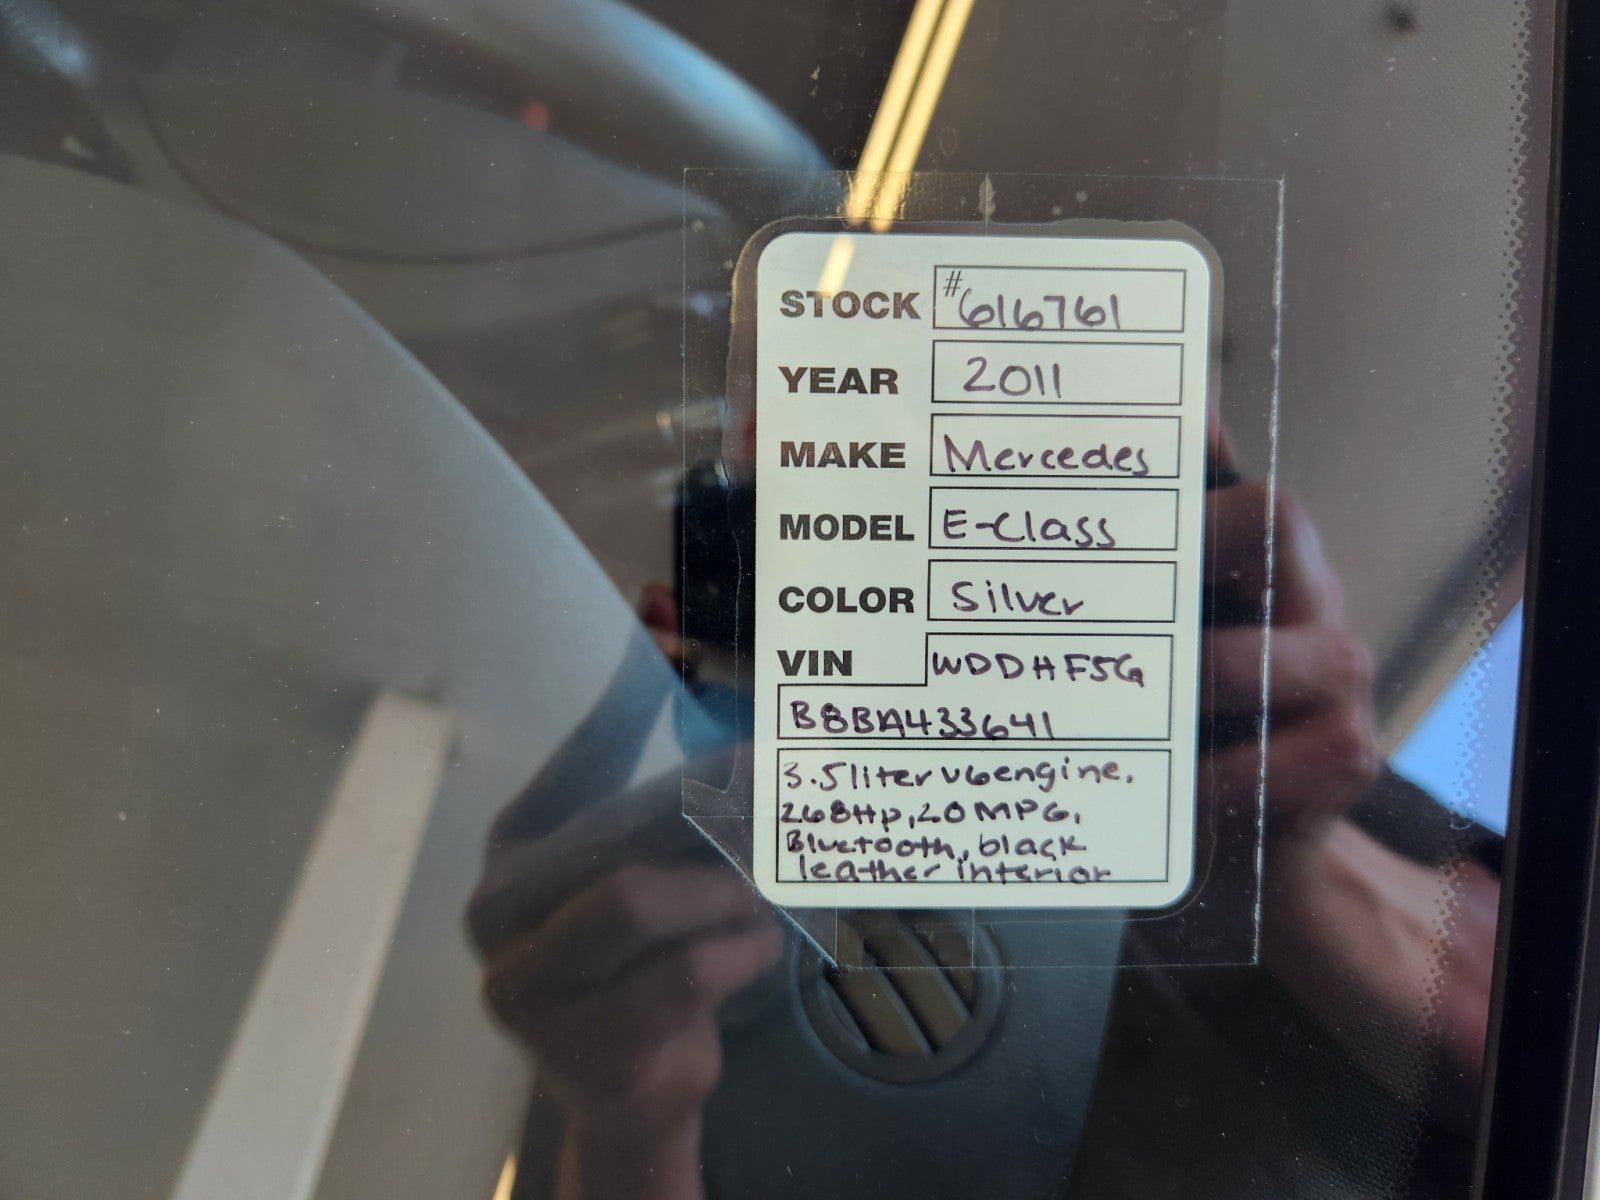 STOCK #616761
YEAR 2011
MAKE Mercedes
MODEL E-Class
COLOR Silver
VIN WDDHF5G
B8BA433641
3.5liter v6engine,
268Hp, 20 MPG,
Bluetooth, black
leather interior